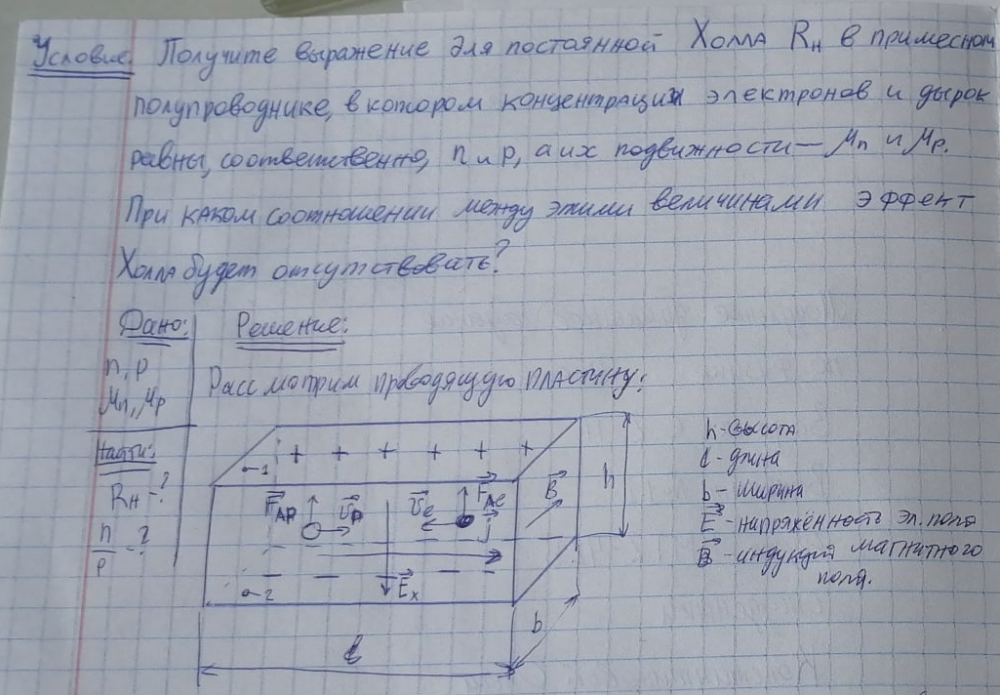 Условие. Получите выражение для постоянной Холла R_H в примесном
полупроводнике, в котором концентрации электронов и дырок
равны, соответственно, n и p, а их подвижности – μ_n и μ_p.
При каком соотношении между этими величинами эффект
Холла будет отсутствовать?
Дано:
n, p
μ_n, μ_p
Найти:
R_H - ?
n/p - ?
Решение:
Рассмотрим проводящую пластину:
+ + + + + +
1
F_Лр
v_p
v_e
F_Ле
j
B
h
2
E_x
b
l
h - высота
l - длина
b - ширина
E - напряжённость эл. поля
B - индукция магнитного
поля.